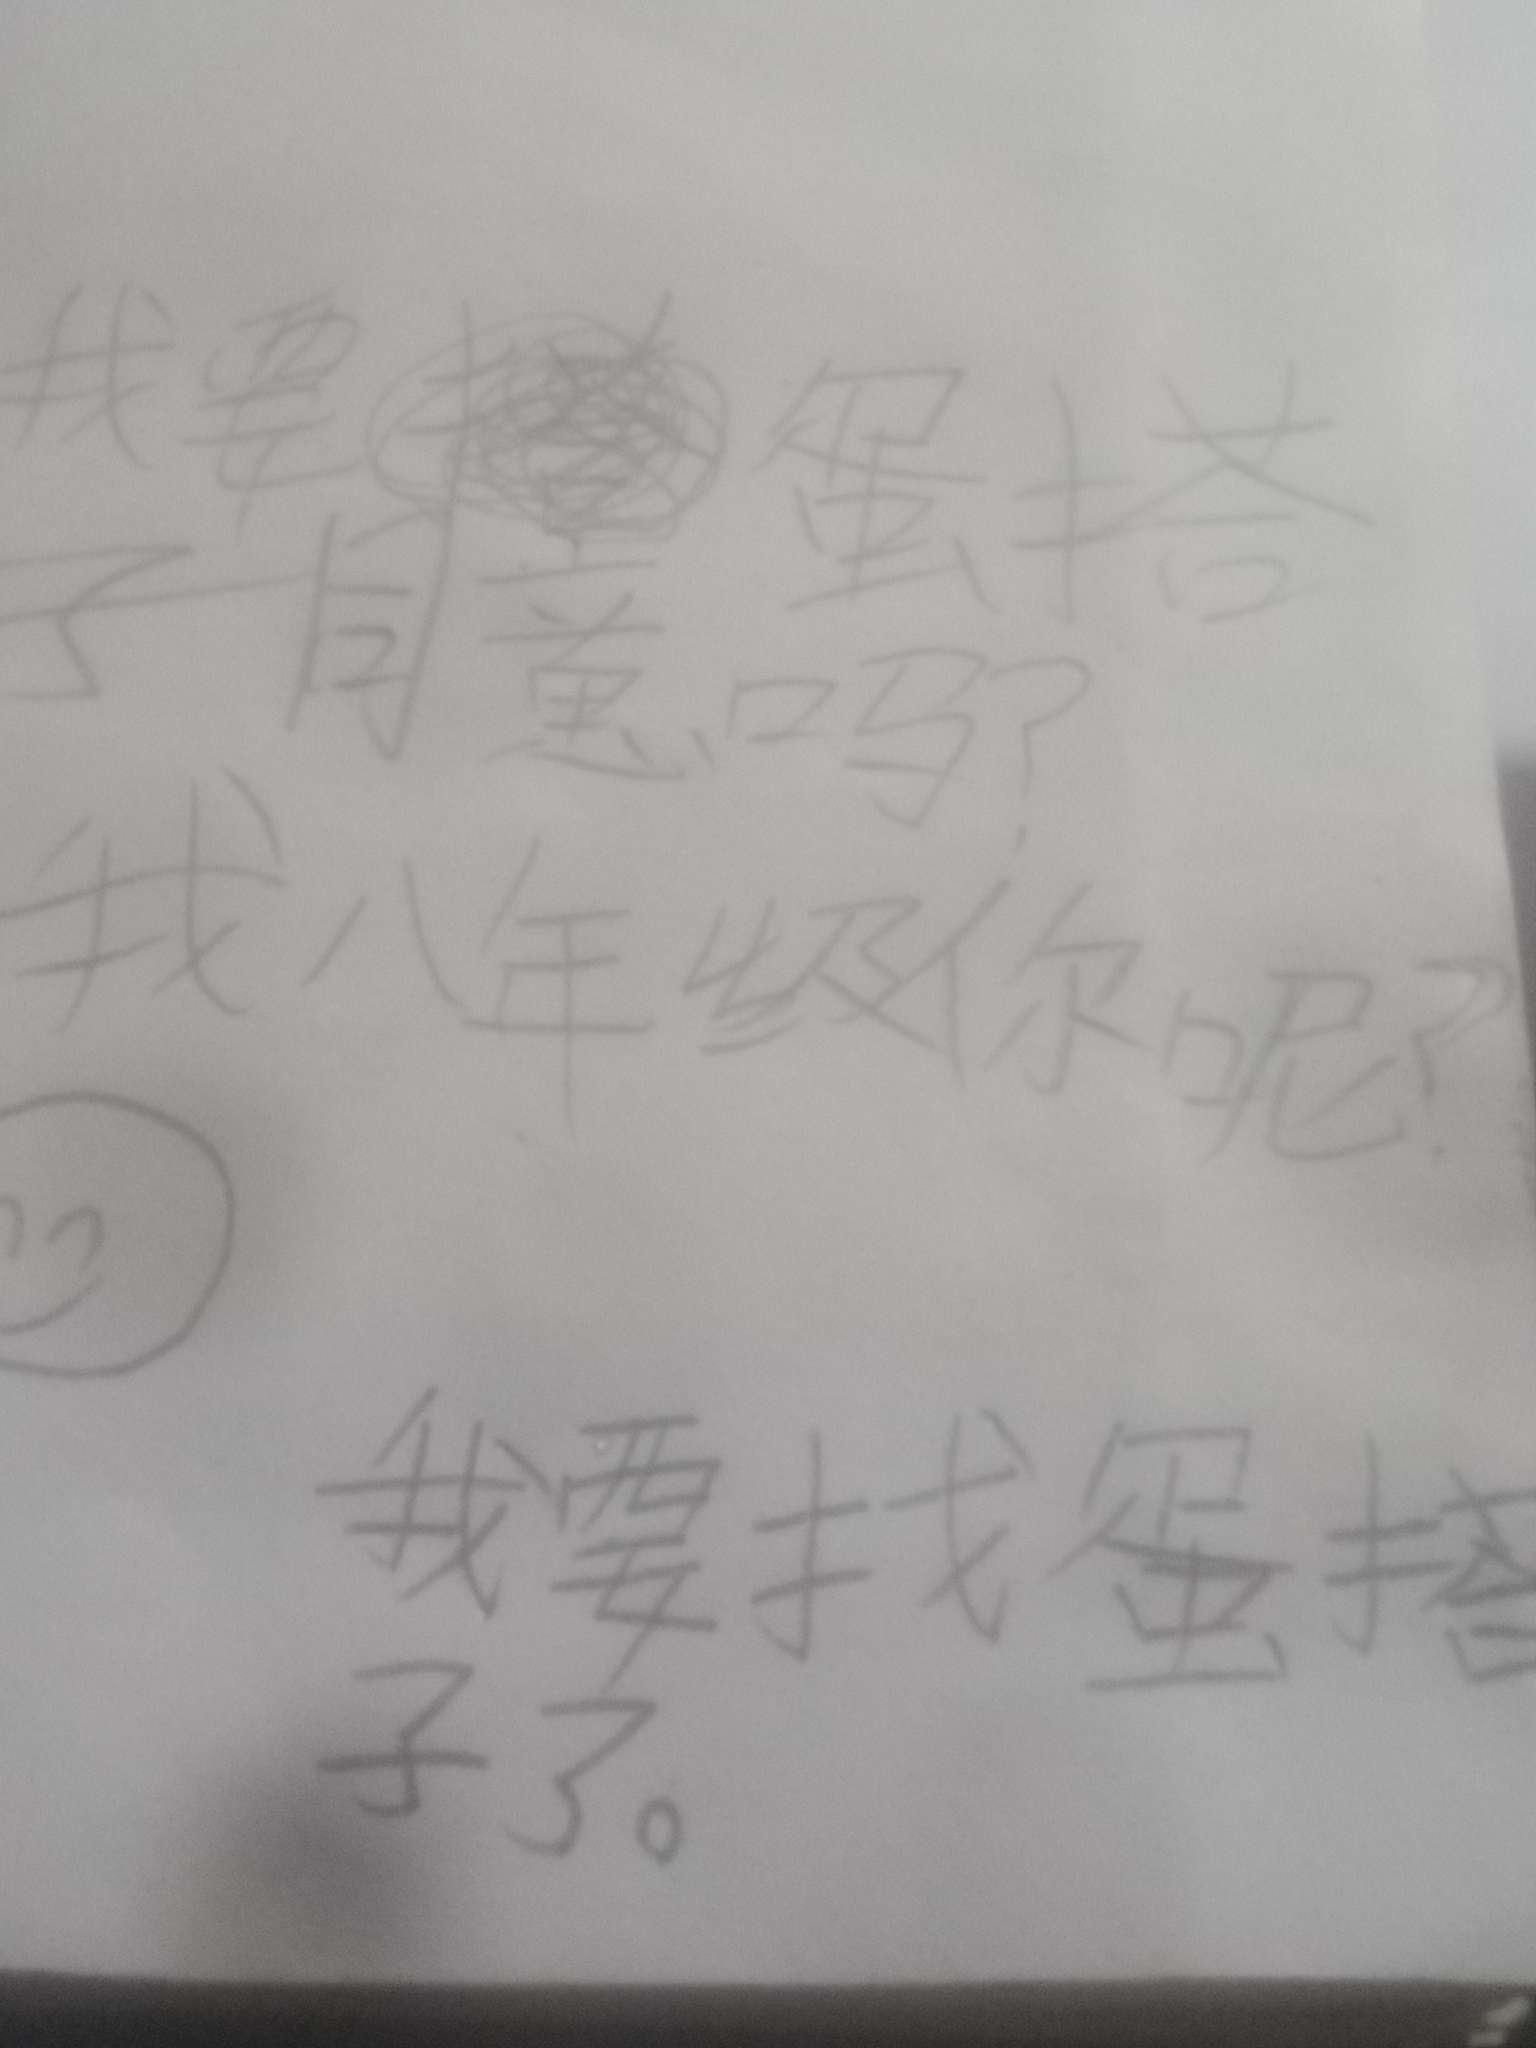 我要蛋搭
子有意吗?
我八年级你呢?
我要找蛋搭
子了。